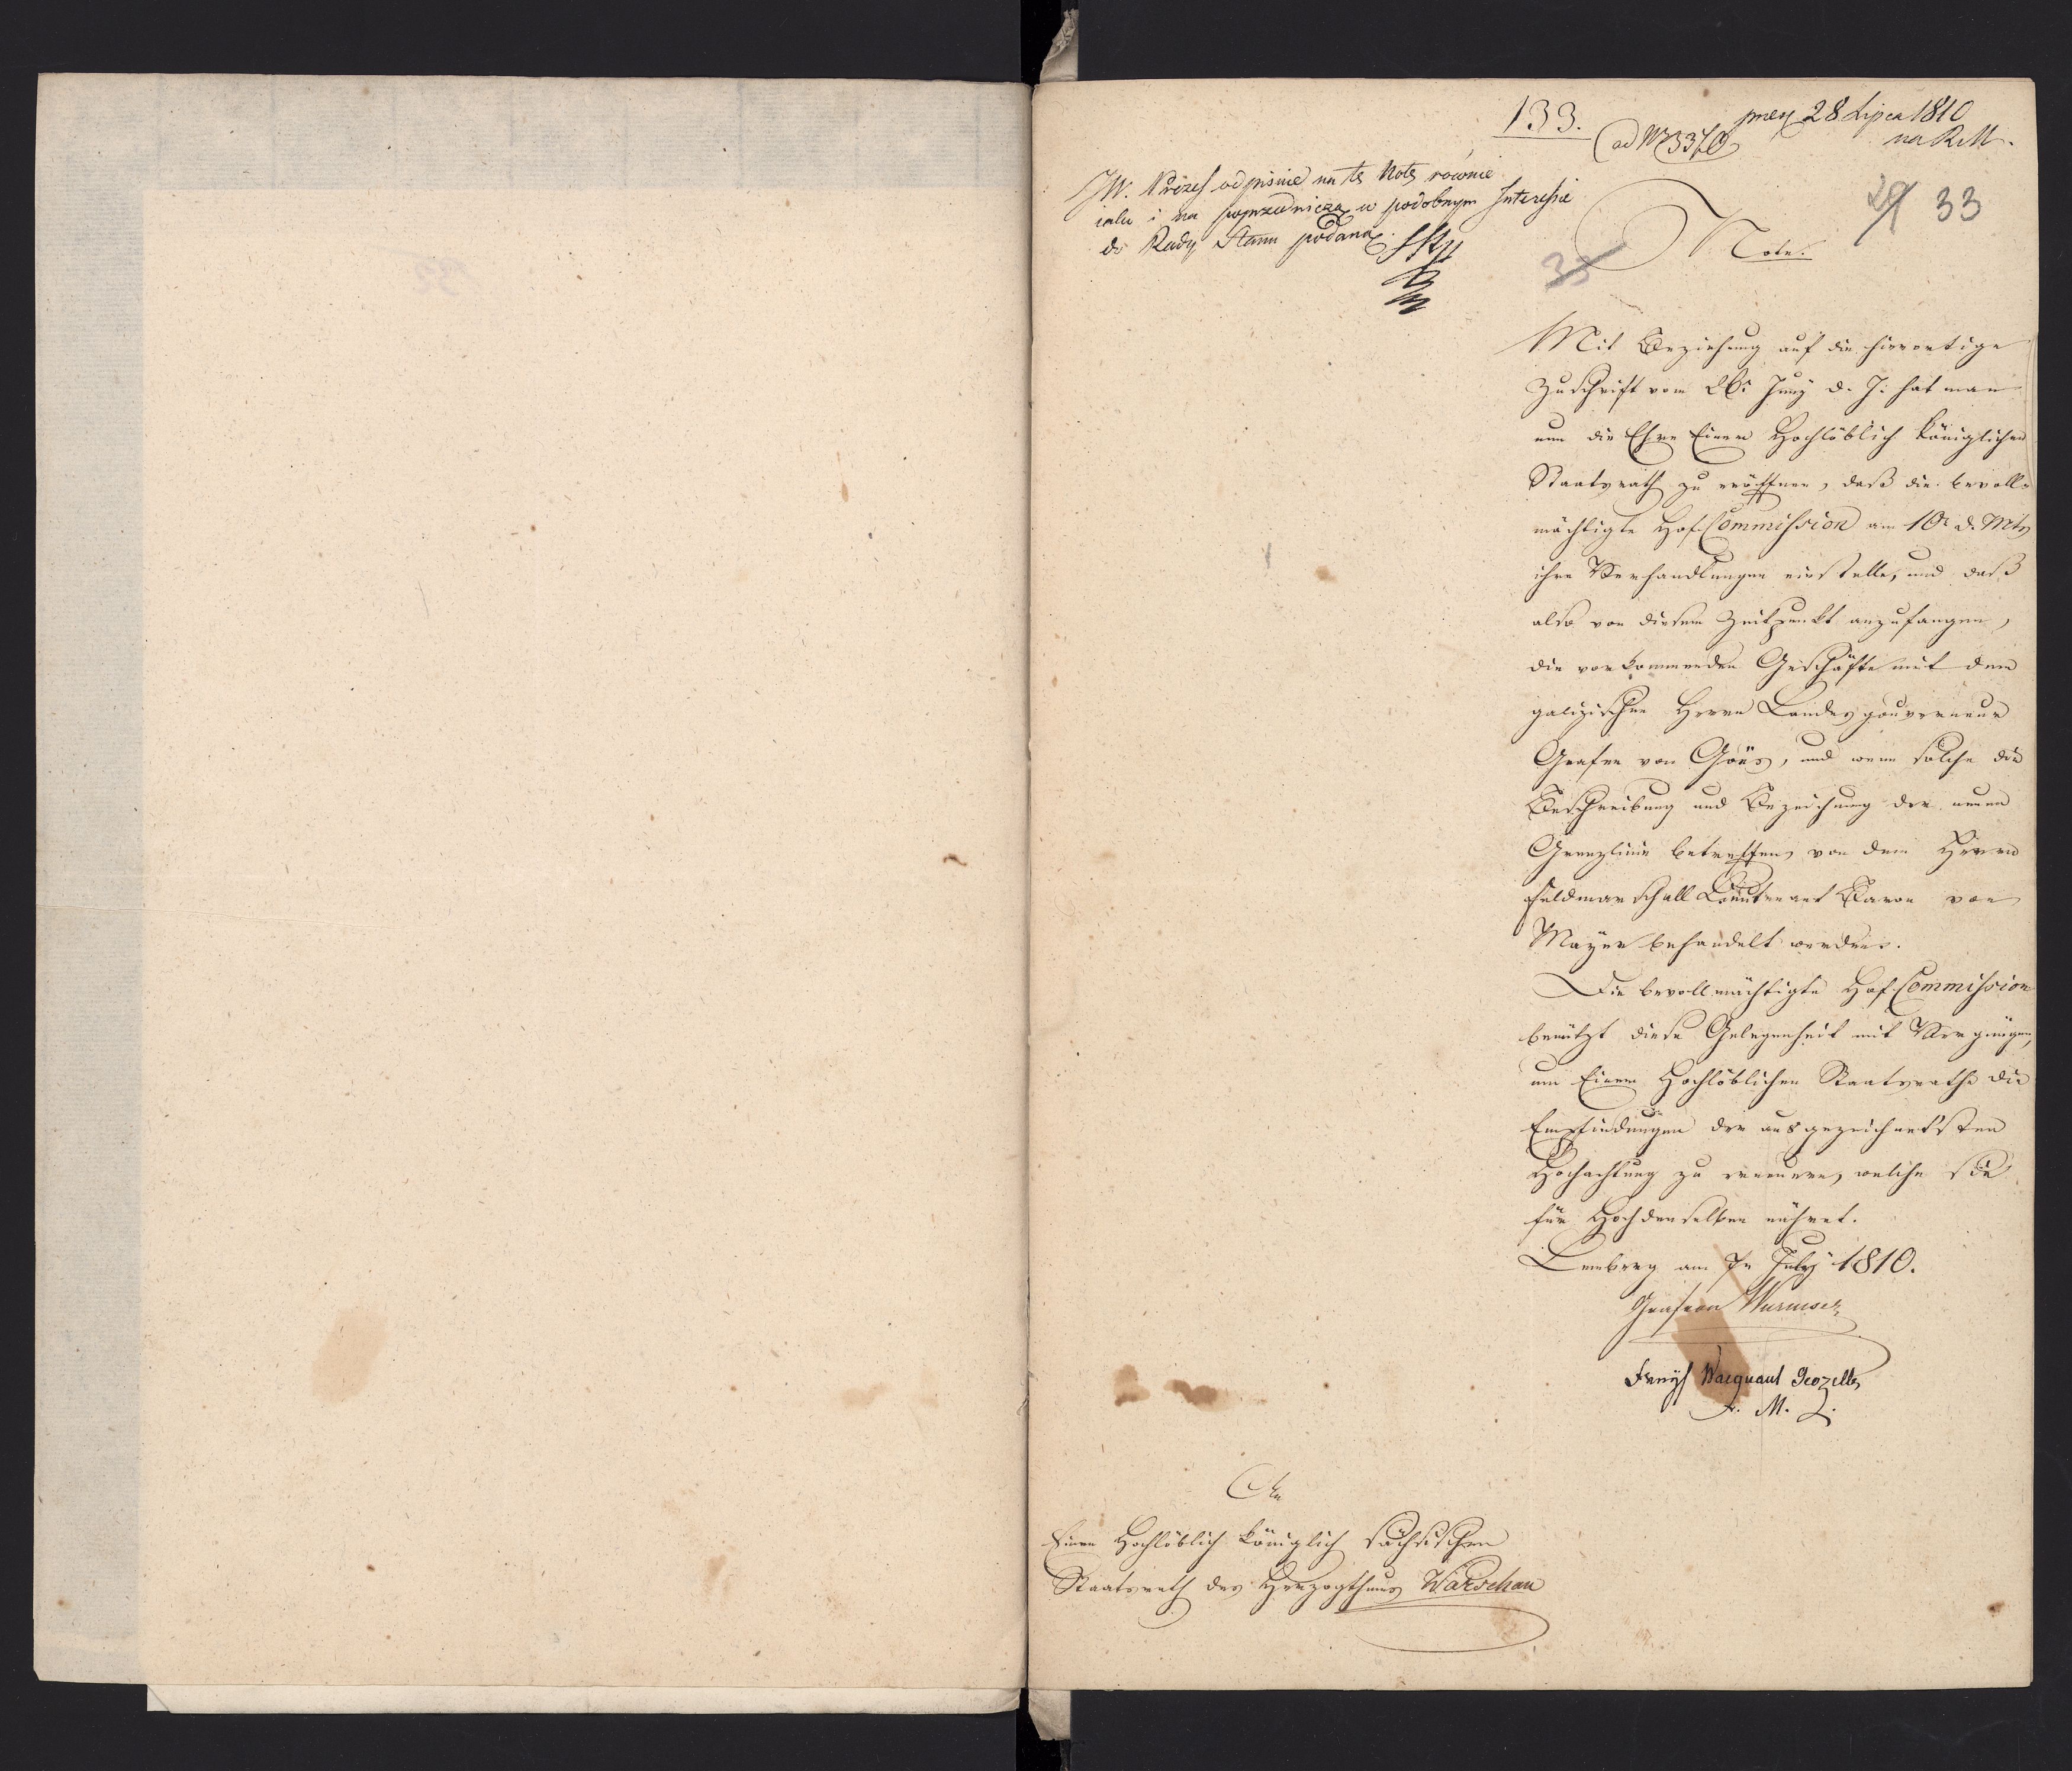 133.
ad Nr 3370
prez 28 Lipca 1810
na R. M.
JW. Prezes odpisuie na tę Notę rownie
iako i na poprzedniczą w podobnym Interessie
do Rady Stanu podaną.
29 33
33
Note.
Mit Beziehung auf die hierortige
Zuschrift vom 26n Juny d. J. hat man
nun die Ehre Einem Hochlöblich Königlichen
Staatsrath zu eröffnen, daß die bevoll-
mächtigte Hof-Commission am 10n d. Mts
ihre Verhandlungen einstelle, und daß
also von diesem Zeitpunkt anzufangen,
die vorkommenden Geschäfte mit dem
galizischen Herrn Landesgouverneur
Grafen von Göes, und wenn solche die
Beschreibung und Bezeichnung der neuen
Grenzlinie betreffen, von dem Herrn
Feldmarschall Lieutenant Baron von
Mayer behandelt werden.
Die bevollmächtigte Hof-Commission
benützt diese Gelegenheit mit Vergnügen,
um Einem Hochlöblichen Staatsrathe die
Empfindungen der ausgezeichnetsten
Hochachtung zu erneuern, welche sie
für Hochdenselben nähret.
Lemberg am 7n July 1810.
Graf von Wurmser
Freyh Wacquant Geozelles
F. M. L.
An
Einen Hochlöblich Königlich sächsischen
Staatsrath des Herzogthums Warschau